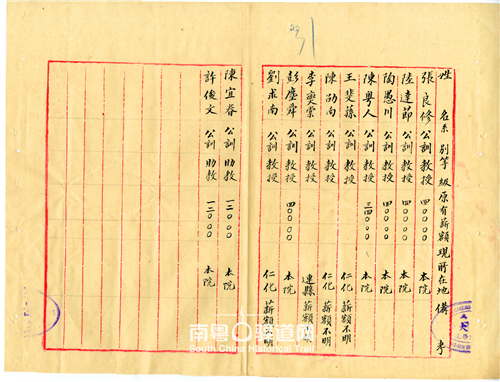 31
姓名 系別 等級 原有薪額 現所在地 備考
張良修 公訓 教授 四〇〇〇〇 本院
陸達節 公訓 教授 四〇〇〇〇 本院
陶愚川 公訓 教授 四〇〇〇〇 本院
陳粵人 公訓 教授 三四〇〇〇 本院
王斐蓀 公訓 教授 仁化 薪額不明
陳劭南 公訓 教授 仁化 薪額不明
李奭棠 公訓 教授 連縣 薪額不明
彭塵舜 公訓 教授 四〇〇〇〇 本院
劉求南 公訓 教授 仁化 薪額不明
陳宜春 公訓 助教 一二〇〇〇 本院
許俊文 公訓 助教 一二〇〇〇 本院
南粤古驿道网
South China Historical Trail